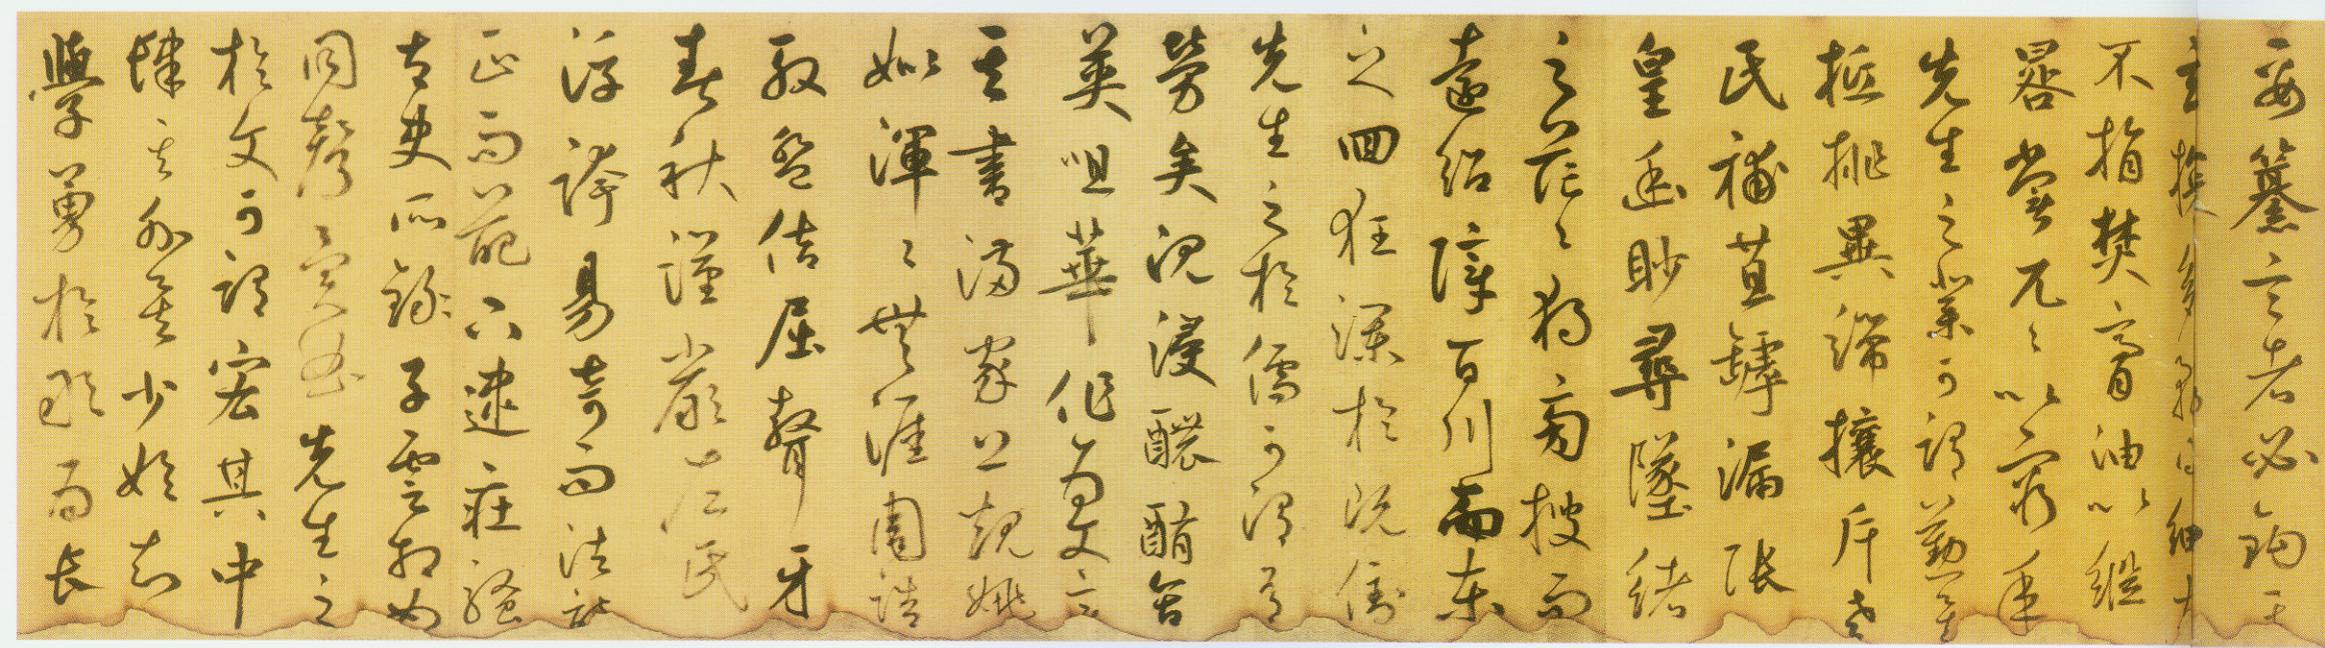 要纂言者必鉤其
玄貪多務得細大
不捐焚膏油以繼
晷常兀〻以窮年
先生之業可謂勤矣
抵排異端攘斥老
氏補苴罅漏張
皇幽眇尋墜緒
之茫〻獨旁搜而
遠紹障百川而東
之回狂瀾於既倒
先生之於儒可謂有
勞矣沉浸醲郁含
英咀華作為文章
其書滿家上規姚
姒渾〻無涯周誥
殷盤佶屈聱牙
春秋謹嚴左氏
浮誇易奇而法詩
正而葩下逮莊騷
太史所錄子雲相如
同異曲先生之
於文可謂宏其中
肆其外矣少始知
學勇於敢為長